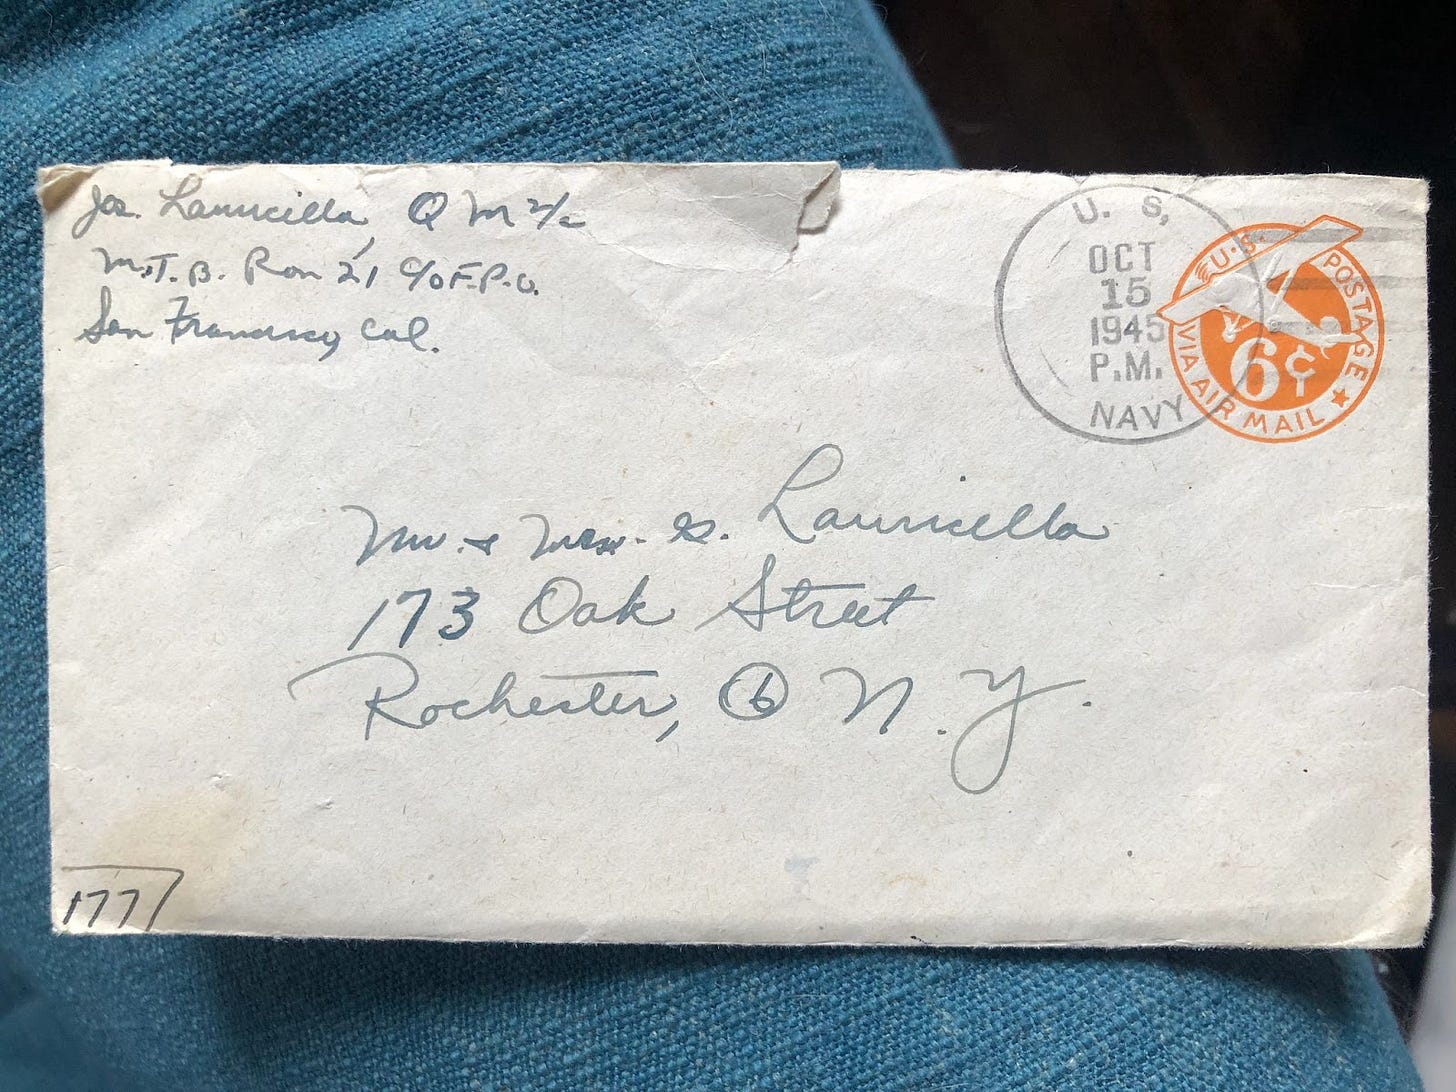 Jos. Lauricella, QM 2/c
M.T.B. Ron 21 c/o F.P.O.
San Francisco, Cal.
U. S.
OCT
15
1945
P.M.
NAVY
U.S. POSTAGE
VIA AIR MAIL
6¢
Mr. & Mrs. S. Lauricella
173 Oak Street
Rochester, 6 N.Y.
177